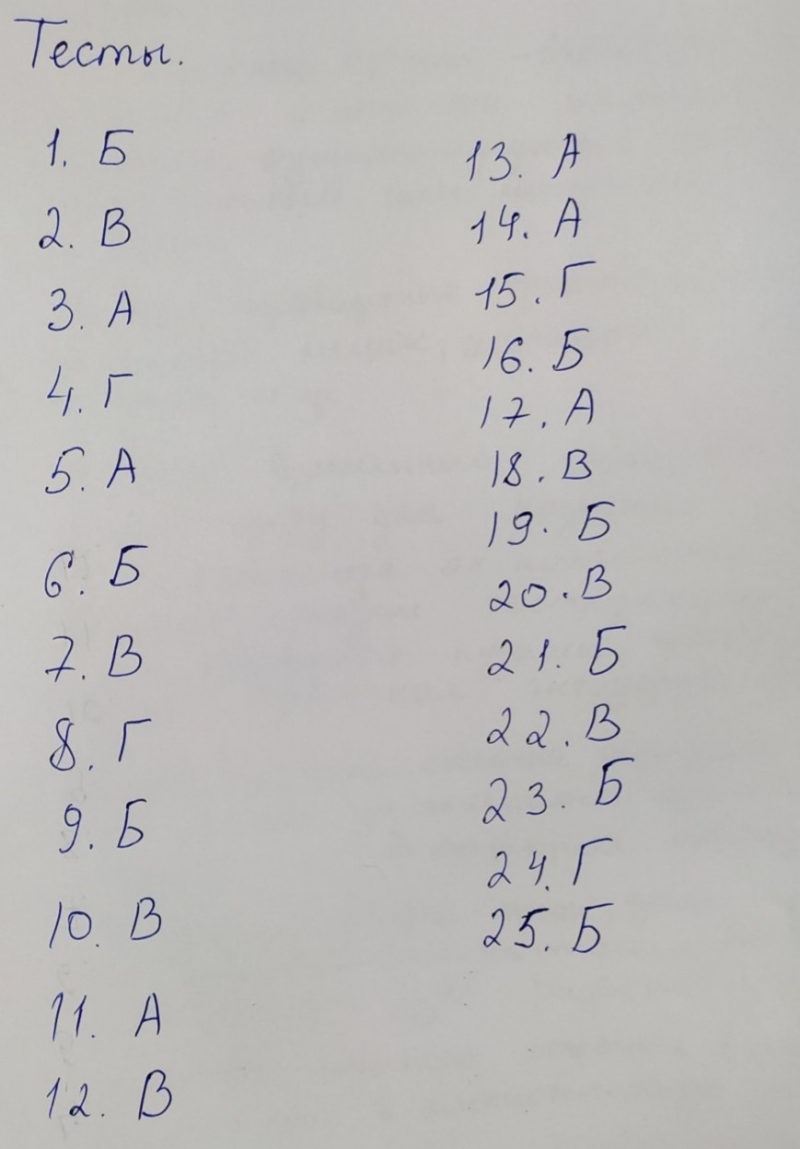 Тесты.
1. Б
2. В
3. А
4. Г
5. А
6. Б
7. В
8. Г
9. Б
10. В
11. А
12. В
13. А
14. А
15. Г
16. Б
17. А
18. В
19. Б
20. В
21. Б
22. В
23. Б
24. Г
25. Б